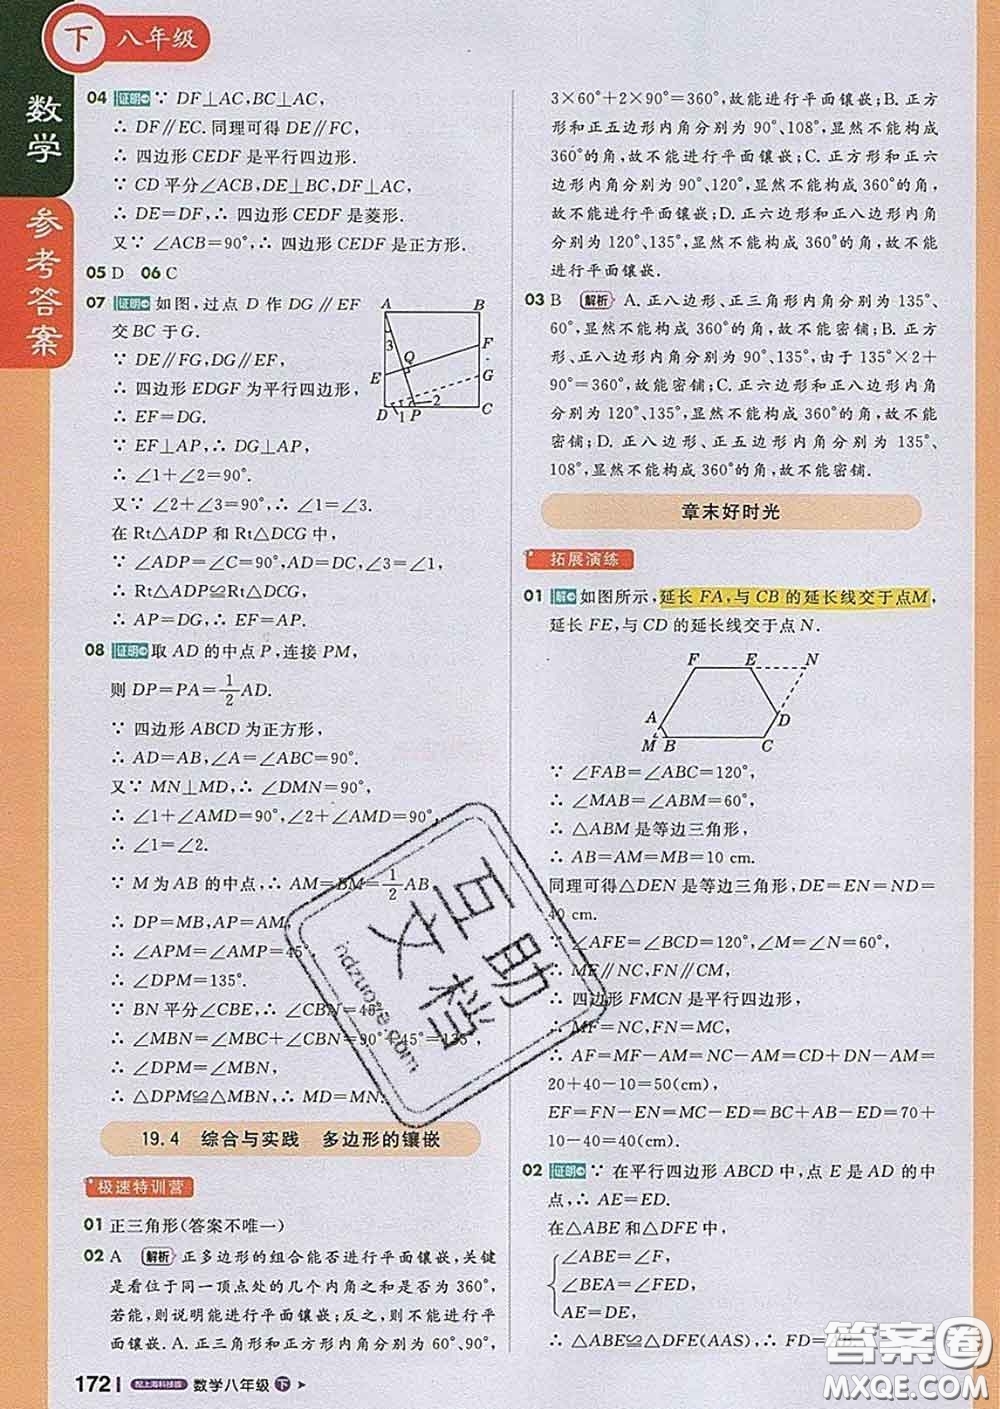 下 八年级
数学
参考答案
04 证明 ∵ DF⊥AC,BC⊥AC,
∴ DF∥EC.同理可得 DE∥FC,
∴ 四边形 CEDF 是平行四边形.
∵ CD 平分∠ACB,DE⊥BC,DF⊥AC,
∴ DE=DF,∴ 四边形 CEDF 是菱形.
又∵ ∠ACB=90°,∴ 四边形 CEDF 是正方形.
05 D 06 C
07 证明 如图,过点 D 作 DG∥EF
交 BC 于 G.
∵ DE∥FG,DG∥EF,
∴ 四边形 EDGF 为平行四边形,
∴ EF=DG.
∵ EF⊥AP,∴ DG⊥AP,
∴ ∠1+∠2=90°.
又∵ ∠2+∠3=90°,∴ ∠1=∠3.
在 Rt△ADP 和 Rt△DCG 中,
∵ ∠ADP=∠C=90°,AD=DC,∠3=∠1,
∴ Rt△ADP≌Rt△DCG,
∴ AP=DG,∴ EF=AP.
A B 3 Q F E G D 1 P 2 C
08 证明 取 AD 的中点 P,连接 PM,
则 DP=PA=1/2AD.
∵ 四边形 ABCD 为正方形,
∴ AD=AB,∠A=∠ABC=90°.
又∵ MN⊥MD,∴ ∠DMN=90°,
∴ ∠1+∠AMD=90°,∠2+∠AMD=90°,
∴ ∠1=∠2.
∵ M 为 AB 的中点,∴ AM=BM=1/2AB,
∴ DP=MB,AP=AM,
∴ ∠APM=∠AMP=45°,
∴ ∠DPM=135°.
∵ BN 平分∠CBE,∴ ∠CBN=45°,
∴ ∠MBN=∠MBC+∠CBN=90°+45°=135°,
∴ ∠DPM=∠MBN,
∴ △DPM≌△MBN,∴ MD=MN.
19.4 综合与实践 多边形的镶嵌
极速特训营
01 正三角形(答案不唯一)
02 A 解析 正多边形的组合能否进行平面镶嵌,关键
是看位于同一顶点处的几个内角之和是否为 360°,
若能,则说明能进行平面镶嵌;反之,则不能进行平
面镶嵌.A.正三角形和正方形内角分别为 60°、90°,
172 配上海科技版 数学八年级 下
3×60°+2×90°=360°,故能进行平面镶嵌;B.正方
形和正五边形内角分别为 90°、108°,显然不能构成
360°的角,故不能进行平面镶嵌;C.正方形和正六
边形内角分别为90°、120°,显然不能构成360°的角,
故不能进行平面镶嵌;D.正六边形和正八边形内角
分别为 120°、135°,显然不能构成 360°的角,故不能
进行平面镶嵌.
03 B 解析 A.正八边形、正三角形内角分别为 135°、
60°,显然不能构成 360°的角,故不能密铺;B.正方
形、正八边形内角分别为 90°、135°,由于 135°×2+
90°=360°,故能密铺;C.正六边形和正八边形内角
分别为 120°、135°,显然不能构成 360°的角,故不能
密铺;D.正八边形、正五边形内角分别为 135°、
108°,显然不能构成 360°的角,故不能密铺.
章末好时光
拓展演练
01 解 如图所示,延长 FA,与 CB 的延长线交于点M,
延长 FE,与 CD 的延长线交于点 N.
F E N A D M B C
∵ ∠FAB=∠ABC=120°,
∴ ∠MAB=∠ABM=60°,
∴ △ABM 是等边三角形,
∴ AB=AM=MB=10 cm.
同理可得△DEN 是等边三角形,DE=EN=ND=
40 cm.
∵ ∠AFE=∠BCD=120°,∠M=∠N=60°,
∴ ME∥NC,FN∥CM,
∴ 四边形 FMCN 是平行四边形,
∴ MF=NC,FN=MC,
∴ AF=MF-AM=NC-AM=CD+DN-AM=
20+40-10=50(cm),
EF=FN-EN=MC-EN=MB+BC-EN=70+
10-40=40(cm).
02 证明 ∵ 在平行四边形 ABCD 中,点 E 是 AD 的中
点,∴ AE=ED.
在△ABE和△DFE中,
∠ABE=∠F,
∠BEA=∠FED,
AE=DE,
∴ △ABE≌△DFE(AAS),∴ FD=
互助文档
hdzuoye.com
答案圈
MXQE.COM